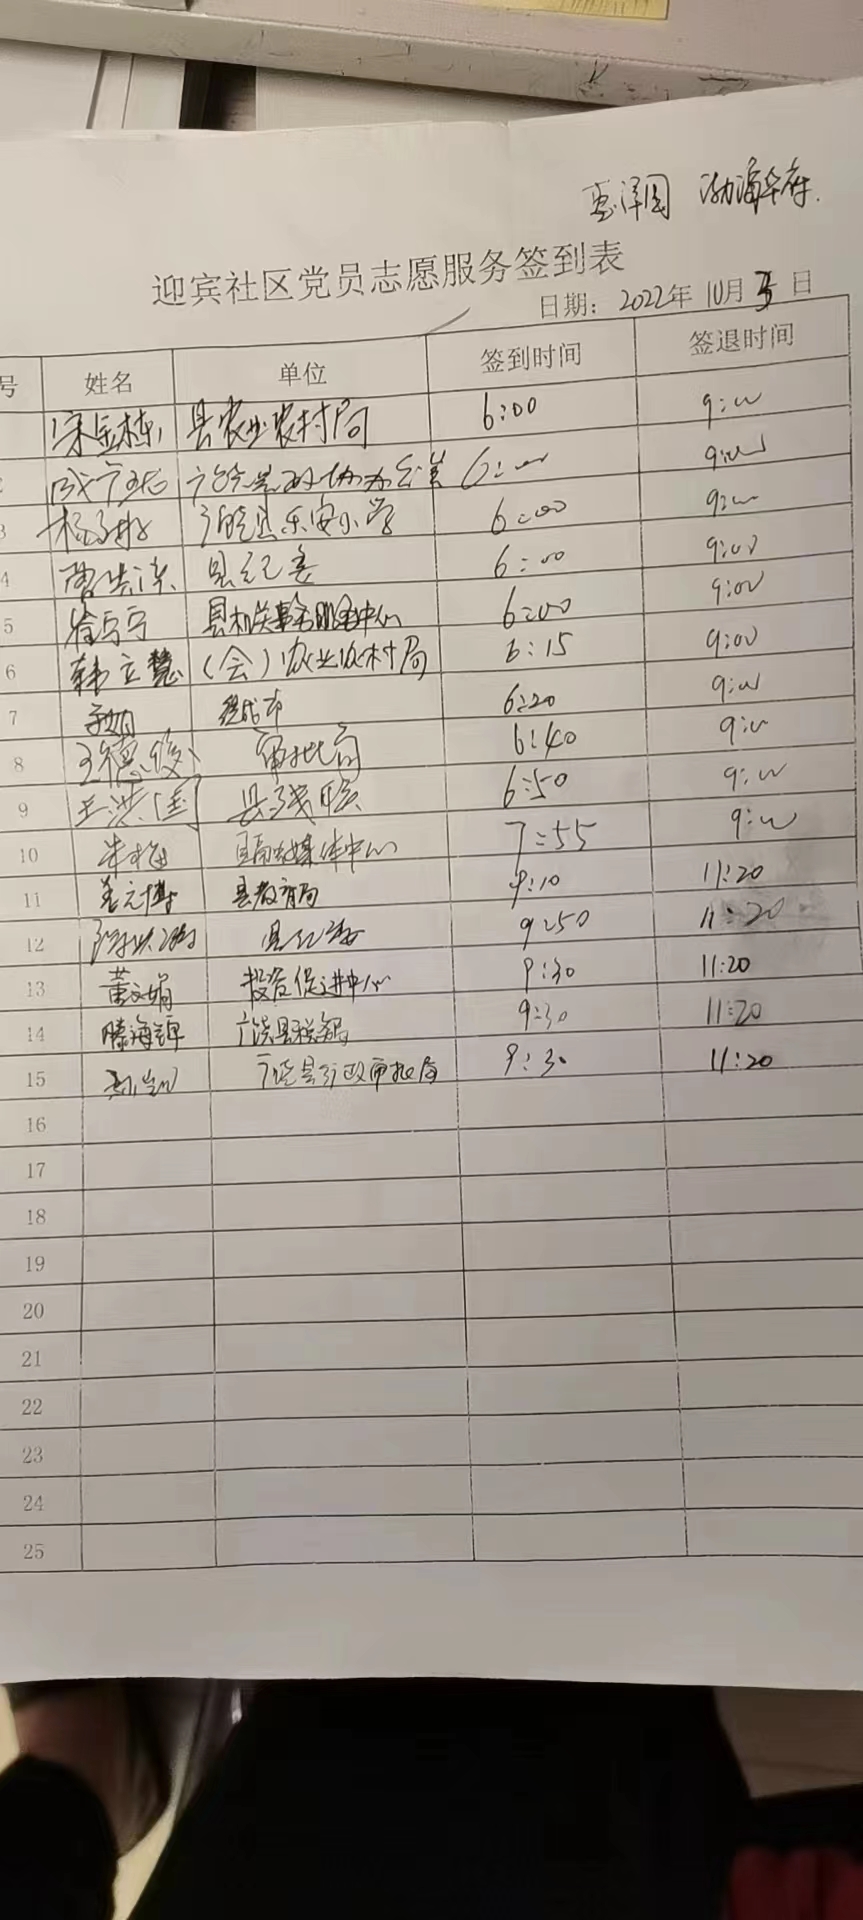 惠泽园 渤海华府.
迎宾社区党员志愿服务签到表
日期: 2022年 10月 日
号 姓名 单位 签到时间 签退时间
县农业农村局 6:00 9:00
6:00 9:00
3 广饶县乐安小学 6:00 9:00
4 县纪委 6:00 9:00
5 县机关事务服务中心 6:00 9:00
6 韩立慧 (会)农业农村局 6:15 9:00
7 6:20 9:00
8 王德俊 审批局 6:40 9:00
9 王洪国 县残联 6:50 9:00
10 朱梅 县融媒体中心 7:55 9:00
11 县教育局 9:10 11:20
12 县纪委 9:50 11:20
13 董文娟 投资促进中心 9:30 11:20
14 滕海 广饶县税务局 9:30 11:20
15 广饶县行政审批局 9:30 11:20
16
17
18
19
20
21
22
23
24
25